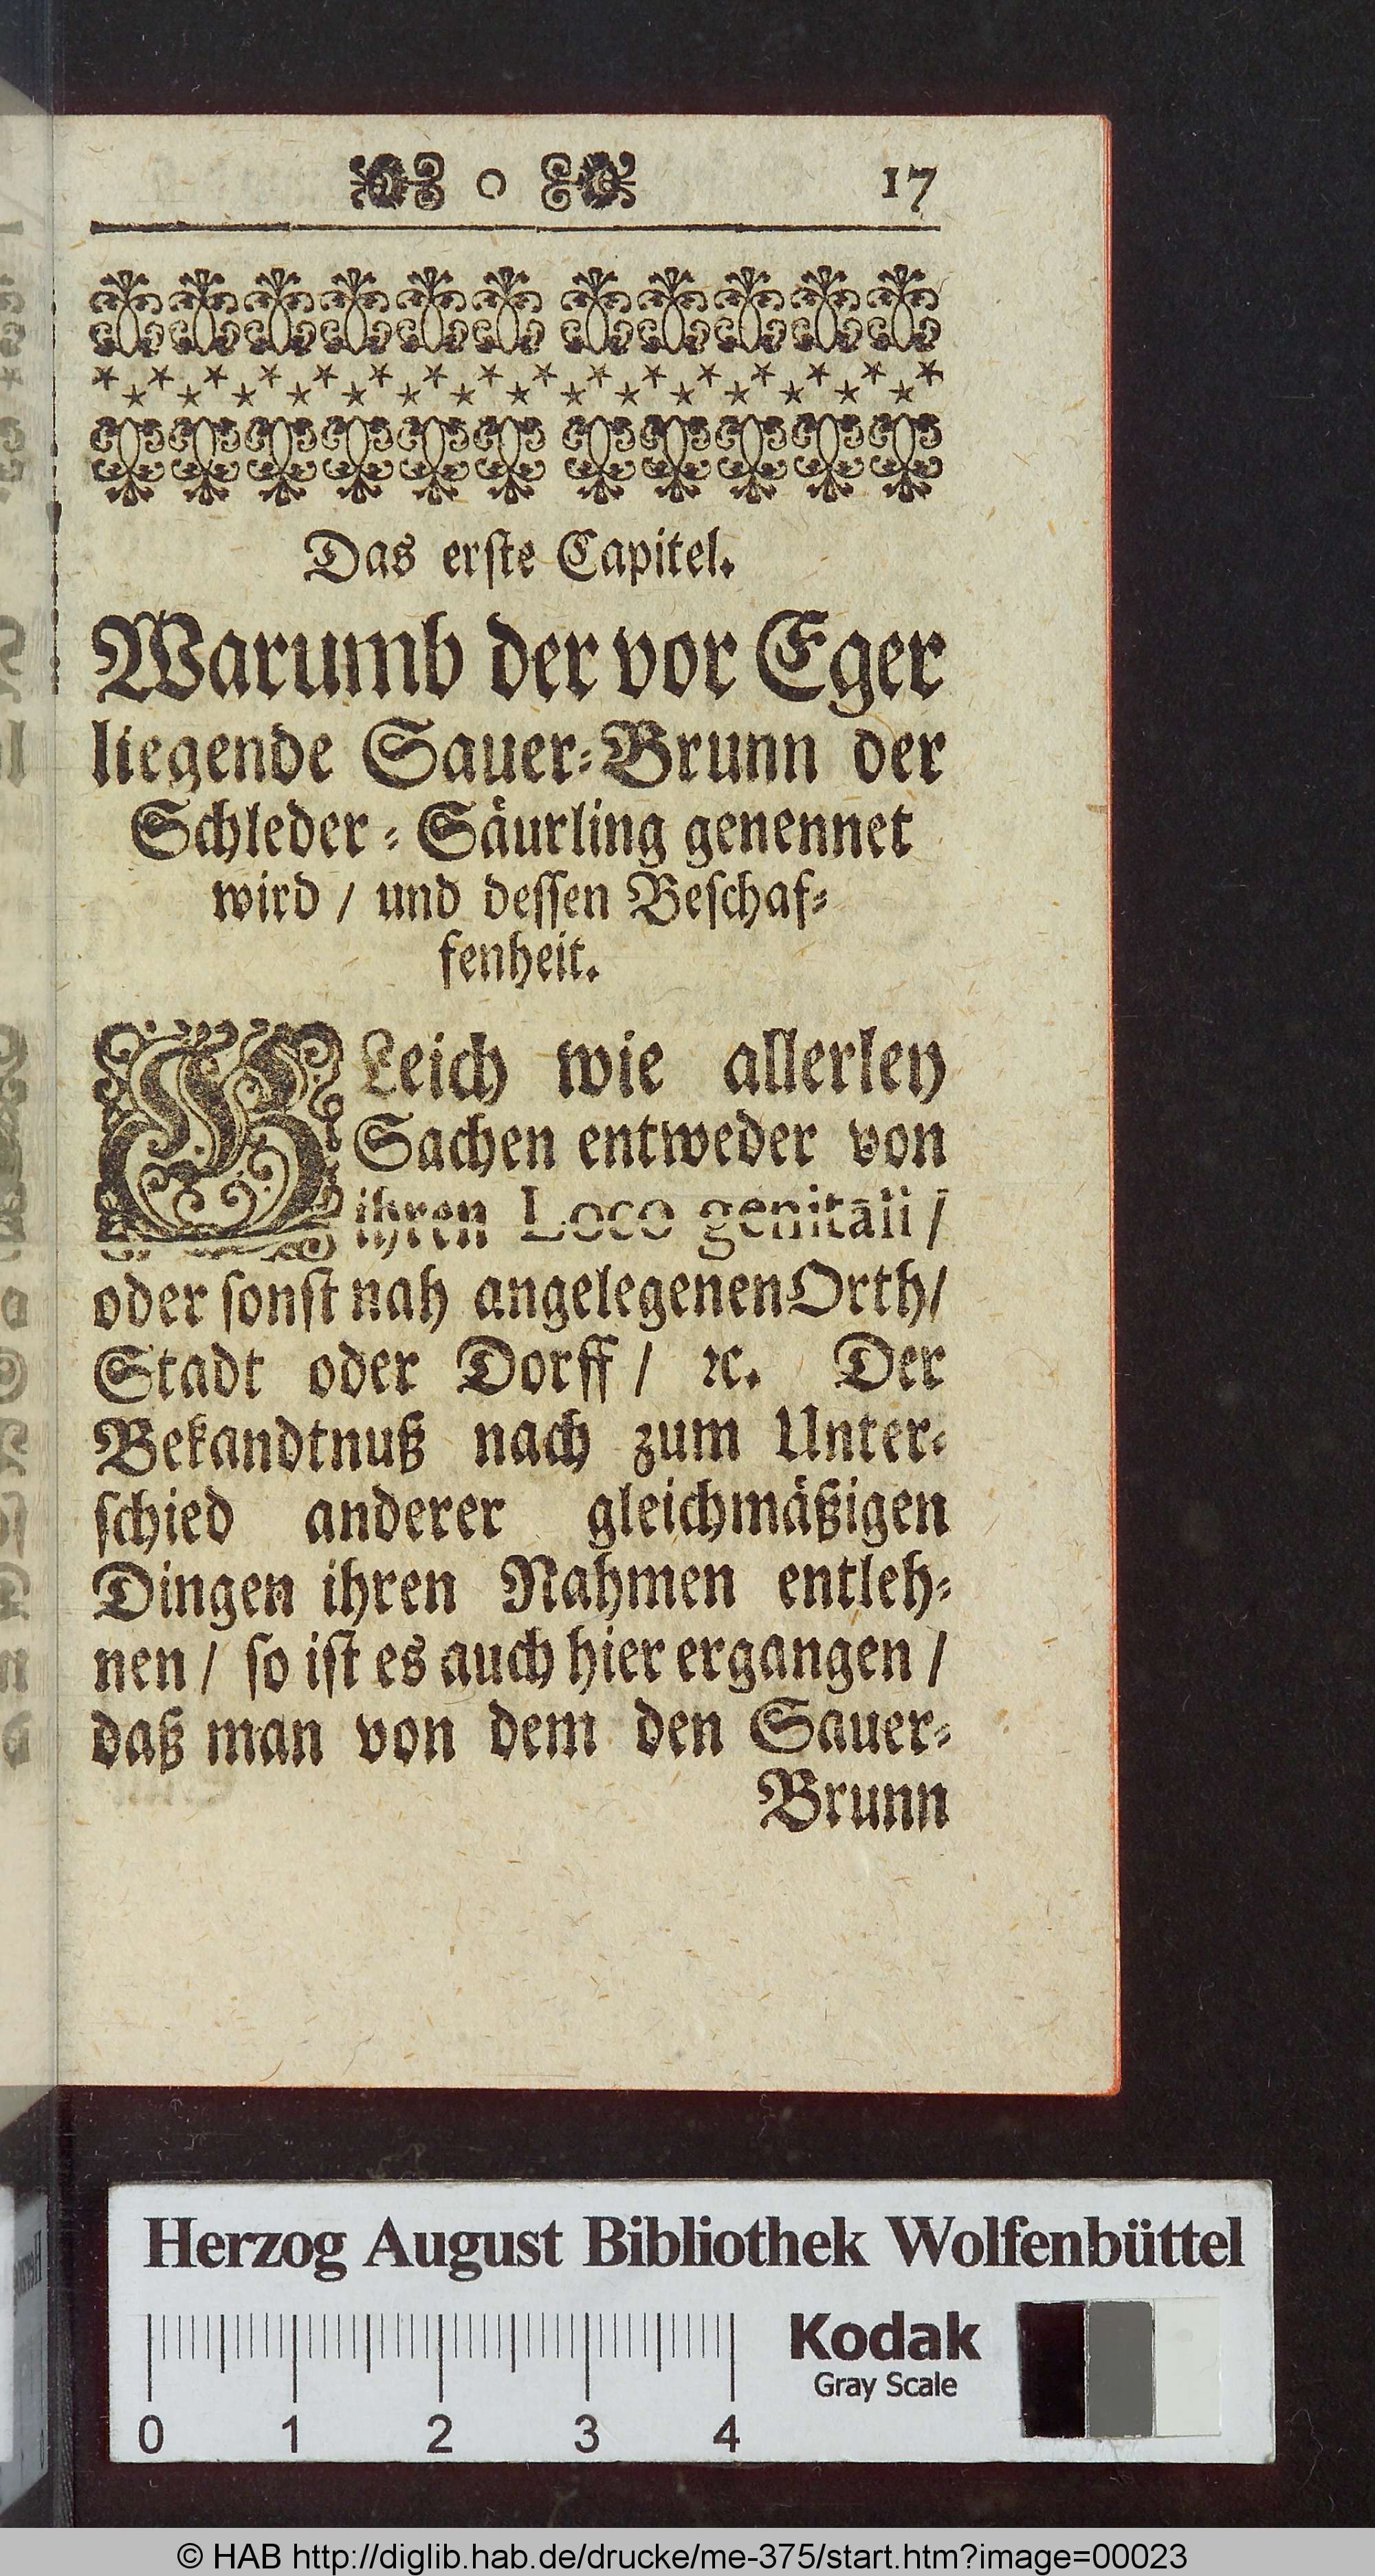 17
Das erste Capitel.
Warumb der vor Eger
liegende Sauer-Brunn der
Schleder-Säurling genennet
wird / und dessen Beschaf-
fenheit.
GLeich wie allerley
Sachen entweder von
ihren Loco genitali /
oder sonst nah angelegenen Orth/
Stadt oder Dorff / ꝛc. Der
Bekandtnuß nach zum Unter-
schied anderer gleichmäßigen
Dingen ihren Nahmen entleh-
nen / so ist es auch hier ergangen /
daß man von dem den Sauer-
Brunn
Herzog August Bibliothek Wolfenbüttel
Kodak
Gray Scale
0 1 2 3 4
© HAB http://diglib.hab.de/drucke/me-375/start.htm?image=00023